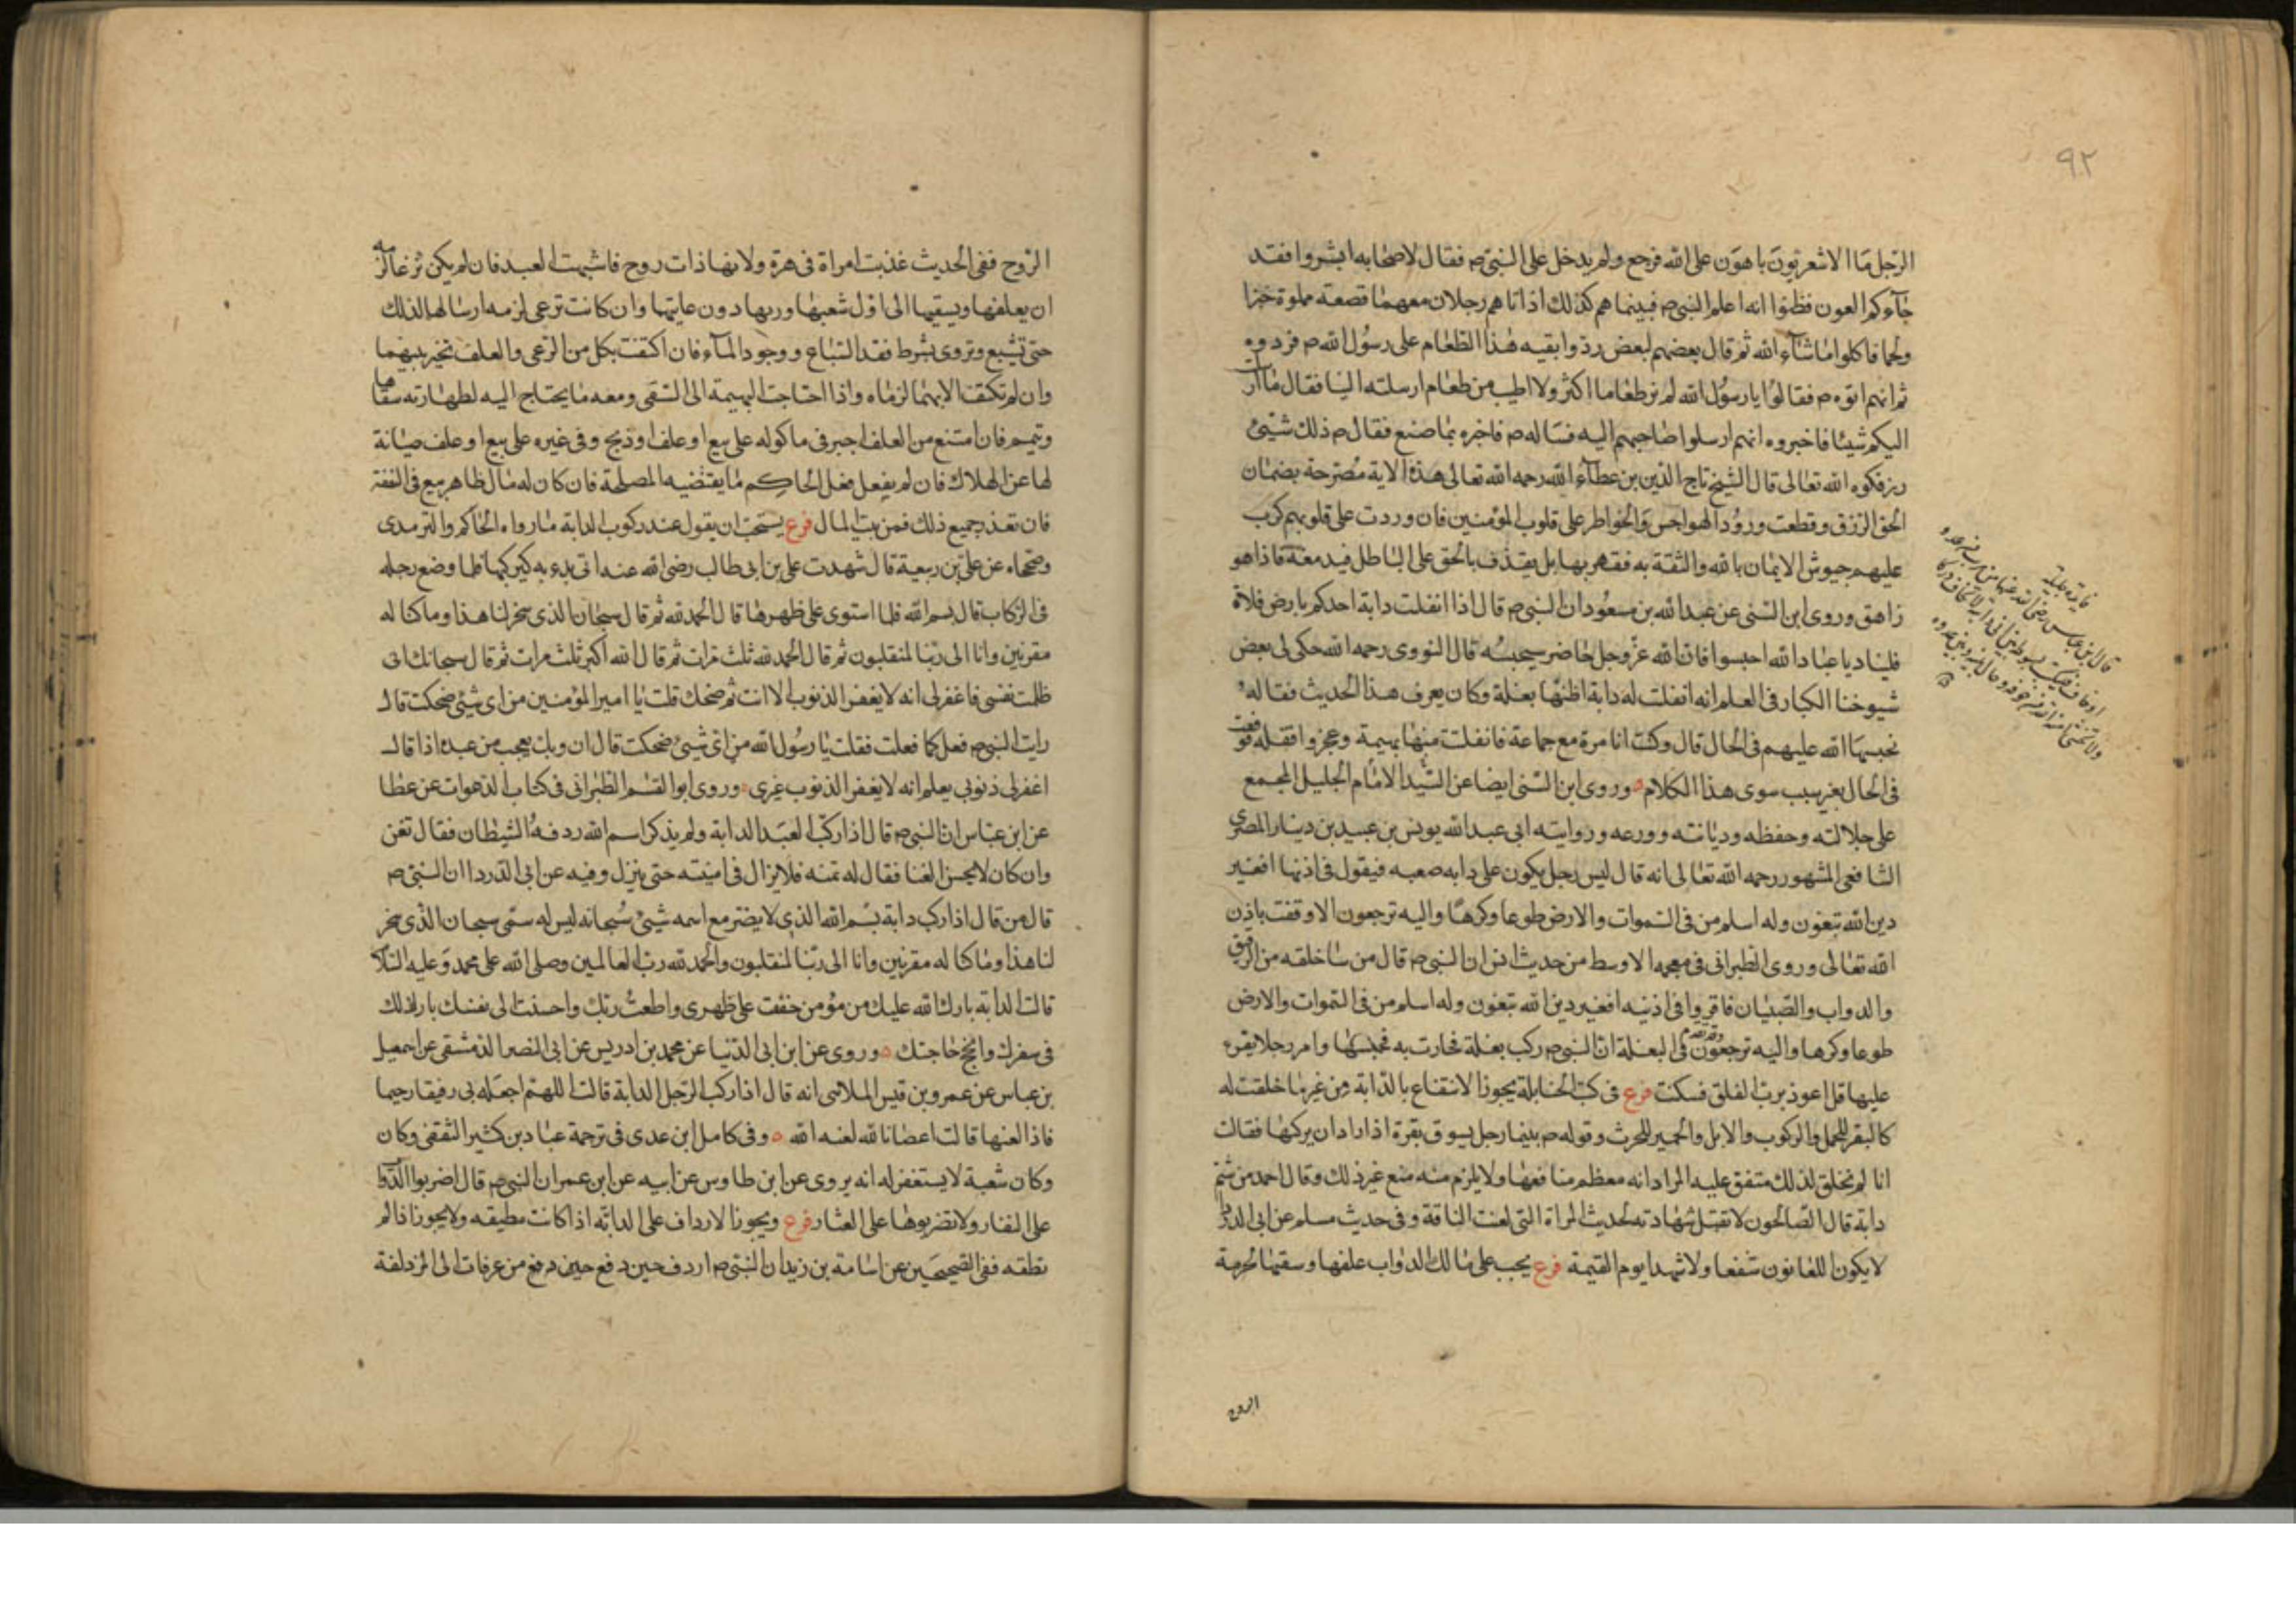 ٩٢
الرجل ما الاشعريون باهون على الله فرجع ولم يدخل على النبي ص فقال لاصحابه ابشروا فقد
جآءكم العون فظنوا انه اعلم النبي ص فبينما هم كذلك اذ اتاهم رجلان معهما قصعة مملوة خبزا
ولحما فاكلوا ماشآء الله ثم قال بعضهم لبعض ردوا بقيه هذا الطعام على رسول الله ص فردوه
ثم انهم اتوه ص فقالوا يا رسول الله لم نر طعاما اكثر ولا اطيب من طعام ارسلته الينا فقال ما ارسلت
اليكم شيئا فاخبروه انهم ارسلوا صاحبهم اليه فساله ص فاخبره بما صنع فقال ص ذلك شيئ
رزقكوه الله تعالى قال الشيخ تاج الدين بن عطآء الله رحمه الله تعالى هذه الاية مصرحة بضمان
الحق الرزق وقطعت ورود الهواجس والخواطر على قلوب المؤمنين فان وردت على قلوبهم كرت
عليهم جيوش الايمان بالله والثقة به فقهر بها بل يقذف بالحق على الباطل فيدمغه فاذا هو
زاهق وروى ابن السنى عن عبد الله بن مسعود ان النبي ص قال اذا انفلتت دابة احدكم بارض فلاة
فليناد يا عباد الله احبسوا فان لله عز وجل حاضر سيحبسه قال النووى رحمه الله حكى لى بعض
شيوخنا الكبار فى العلم انه انفلتت له دابة اظنها بغلة وكان يعرف هذا الحديث فقاله
فحبسها الله عليهم فى الحال قال وكنت انا مرة مع جماعة فانفلتت منها بهيمة وعجزوا فقلته فوقفت
فى الحال بغير سبب سوى هذا الكلام وروى ابن السنى ايضا عن السيد الامام الجليل المجمع
على جلالته وحفظه وديانته وورعه وروايته ابى عبد الله يونس بن عبيد بن دينار المصرى
الشافعى المشهور رحمه الله تعالى انه قال ليس رجل يكون على دابه صعبه فيقول فى اذنها افغير
دين الله تبغون وله اسلم من فى السموات والارض طوعا وكرها واليه ترجعون الا وقفت باذن
الله تعالى وروى الطبرانى فى معجمه الاوسط من حديث انس ان النبي ص قال من سا خلقه من الرقيق
والدواب والصبيان فاقروا فى اذنيه افغير دين الله تبغون وله اسلم من فى السموات والارض
طوعا وكرها واليه ترجعون وتقدم فى البغلة ان النبي ص ركب بغلة فحارت به فحبسها وامر رجلا يقرء
عليها قل اعوذ برب الفلق فسكنت فرع فى كتب الحنابلة يجوز الانتفاع بالدابة من غير ما خلقت له
كالبقر للحمل والركوب والابل والحمير للحرث وقوله ص بينما رجل يسوق بقرة اذ اراد ان يركبها فقالت
انا لم نخلق لذلك متفق عليه المراد انه معظم منافعها ولا يلزم منه منع غير ذلك وقال احمد من شتم
دابة قال الصالحون لا تقبل شهادته لحديث المراة التى لعنت الناقة وفى حديث مسلم عن ابى الدردا
لا يكون اللعانون شفعا ولا شهدا يوم القيمة فرع يجب على مالك الدواب علفها وسقيها لحرمة
الروح
فائدة جليلة
قال ابن عباس رضى الله عنهما
الروح ففى الحديث عذبت امراة فى هرة ولانها ذات روح فاشبهت العبد فان لم يكن ترعا لزمه
ان يعلفها ويسقيها الى اول شعبها وربها دون غايتهما وان كانت ترعى لزمه ارسالها لذلك
حتى تشبع وتروى بشرط فقد السباع ووجود المآء فان اكتفت بكل من الرعى والعلف تخير بينهما
وان لم تكتف الا بهما لزماه واذا احتاجت البهيمة الى السقى ومعه ما يحتاج اليه لطهارته سقاها
وتيمم فان امتنع من العلف اجبر فى ماكوله على بيع او علف او ذبح وفى غيره على بيع او علف صيانة
لها عن الهلاك فان لم يفعل فعل الحاكم ما يقتضيه المصلحة فان كان له مال ظاهر بيع فى النفقة
فان تعذر جميع ذلك فمن بيت المال فرع يستحب ان يقول عند ركوب الدابة ما رواه الحاكم والترمدى
وصححاه عن على بن ربيعة قال شهدت على بن ابى طالب رضى الله عنه اتى بدابه ليركبها فلما وضع رجله
فى الركاب قال بسم الله فلما استوى على ظهرها قال الحمد لله ثم قال سبحان الذى سخر لنا هذا وما كنا له
مقرنين وانا الى ربنا لمنقلبون ثم قال الحمد لله ثلث مرات ثم قال الله اكبر ثلث مرات ثم قال سبحانك انى
ظلمت نفسى فاغفر لى انه لا يغفر الذنوب الا انت ثم ضحك قلت يا امير المؤمنين من اى شيئ ضحكت قال
رايت النبي ص فعل كما فعلت فقلت يا رسول الله من اى شيئ ضحكت قال ان ربك يعجب من عبده اذا قال
اغفر لى ذنوبى يعلم انه لا يغفر الذنوب غيرى وروى ابو القسم الطبرانى فى كتاب الدعوات عن عطا
عن ابن عباس ان النبي ص قال اذا ركب العبد الدابة ولم يذكر اسم الله ردفه الشيطان فقال تغن
وان كان لا يحسن الغنا فقال له تمنه فلا يزال فى امنيته حتى ينزل وفيه عن ابى الدردا ان النبى ص
قال من قال اذا ركب دابة بسم الله الذى لا يضر مع اسمه شيئ سبحانه ليس له سمى سبحان الذى سخر
لنا هذا وما كنا له مقرنين وانا الى ربنا لمنقلبون والحمد لله رب العالمين وصلى الله على محمد وعليه السلام
قالت الدابة بارك الله عليك من مؤمن خففت على ظهرى واطعت ربك واحسنت الى نفسك بارك الله لك
فى سفرك وانجح حاجتك وروى عن ابن ابى الدنيا عن محمد بن ادريس عن ابى النصر الدمشقى عن اسمعيل
بن عباس عن عمرو بن قيس الملاسى انه قال اذا ركب الرجل الدابة قالت اللهم اجعله بى رفيقا رحيما
فاذا لعنها قالت اعصانا لله لعنه الله وفى كامل ابن عدى فى ترجمة عباد بن كثير الثقفى وكان
وكان شعبة لا يستغفر له انه يروى عن ابن طاوس عن ابيه عن ابن عمر ان النبي ص قال اضربوا الدواب
على النفار ولا تضربوها على العثار فرع ويجوز الارداف على الدابه اذا كانت مطيقه ولا يجوز اذا لم
تطقه ففى الصحيحين عن اسامة بن زيد ان النبى ص اردف حين دفع من عرفات الى المزدلفة